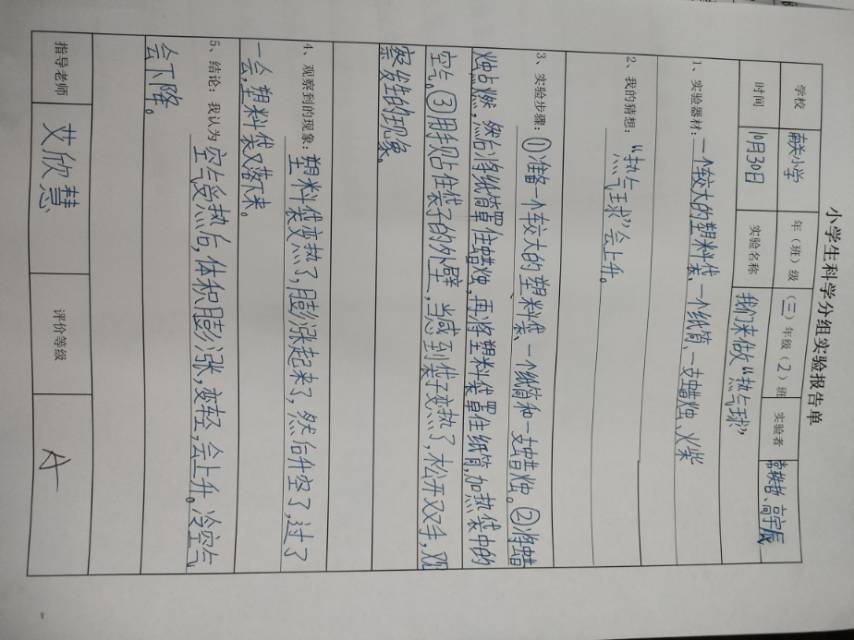 小学生科学分组实验报告单
学校 南关小学 年（班）级 （三）年级（2）班 实验者 高宇辰
时间 10月30日 实验名称 我们来做“热气球”
1、实验器材：一个较大的塑料袋、一个纸筒、一支蜡烛、火柴
2、我的猜想：“热气球”会上升。
3、实验步骤：①准备一个较大的塑料袋、一个纸筒和一支蜡烛。②将蜡
烛点燃，然后将纸筒罩住蜡烛，再将塑料袋罩住纸筒，加热袋中的
空气。③用手轻贴住袋子的外壁，当感到袋子变热了，松开双手，观
察发生的现象。
4、观察到的现象：塑料袋变热了，膨涨起来了，然后升空了，过了
一会，塑料袋又落下来。
5、结论：我认为空气受热后，体积膨涨，变轻，会上升。冷空气
会下降。
指导老师 艾欣慧 评价等级 A